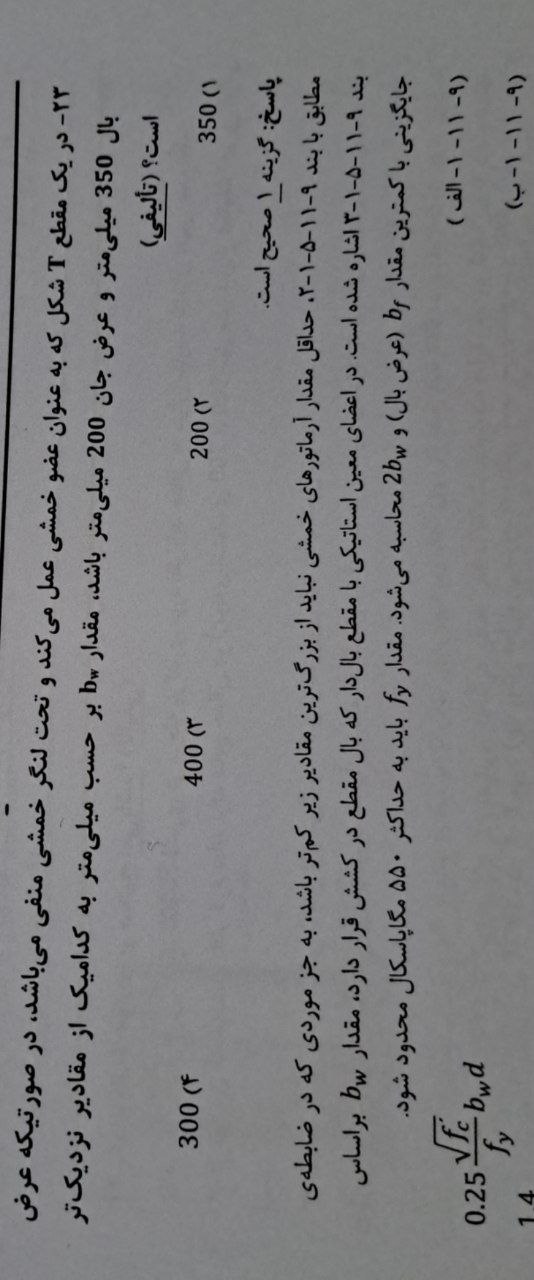 ۲۳- در یک مقطع T شکل که به عنوان عضو خمشی عمل می‌کند و تحت لنگر خمشی منفی می‌باشد، در صورتیکه عرض
بال 350 میلی‌متر و عرض جان 200 میلی‌متر باشد، مقدار bw بر حسب میلی‌متر به کدامیک از مقادیر نزدیک‌تر
است؟ (تألیفی)
۱) 350 ۲) 200 ۳) 400 ۴) 300
پاسخ: گزینه ۱ صحیح است.
مطابق با بند ۹-۱۱-۵-۱-۲، حداقل مقدار آرماتورهای خمشی نباید از بزرگ‌ترین مقادیر زیر کم‌تر باشد، به جز موردی که در ضابطه‌ی
بند ۹-۱۱-۵-۱-۳ اشاره شده است. در اعضای معین استاتیکی با مقطع بال‌دار که بال مقطع در کشش قرار دارد، مقدار bw براساس
جایگزینی با کمترین مقدار bf (عرض بال) و 2bw محاسبه می‌شود. مقدار fy باید به حداکثر ۵۵۰ مگاپاسکال محدود شود.
(۹-۱۱-۱-الف) 0.25 √f'c / fy bw d
(۹-۱۱-۱-ب) 1.4